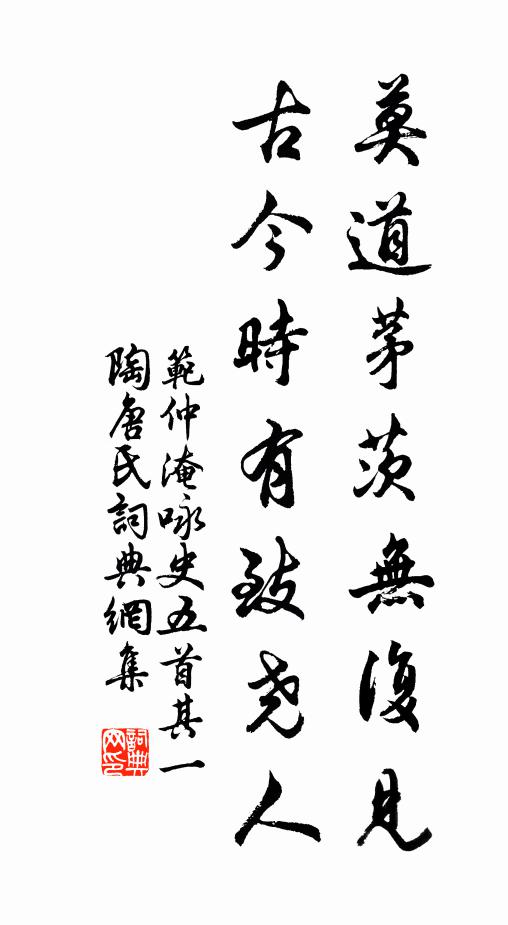 莫道茅茨無復見
古今時有致尧人
範仲淹咏史五首其一
陶唐氏詞典網集
詞典网印